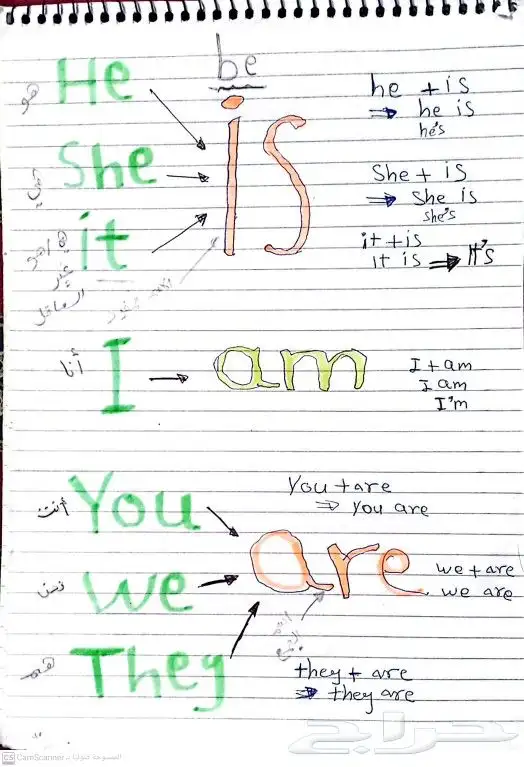 be
He
هو
is
he + is
⇒ he is
he's
She
هي
She + is
⇒ She is
she's
it
هي / هو
غير
العاقل
it + is
it is ⇒ It's
I
أنا
am
I + am
I am
I'm
You
أنت
You + are
⇒ you are
we
نحن
are
we + are
we are
They
هم
they + are
⇒ they are
حراج
CS CamScanner الممسوحة ضوئيا بـ